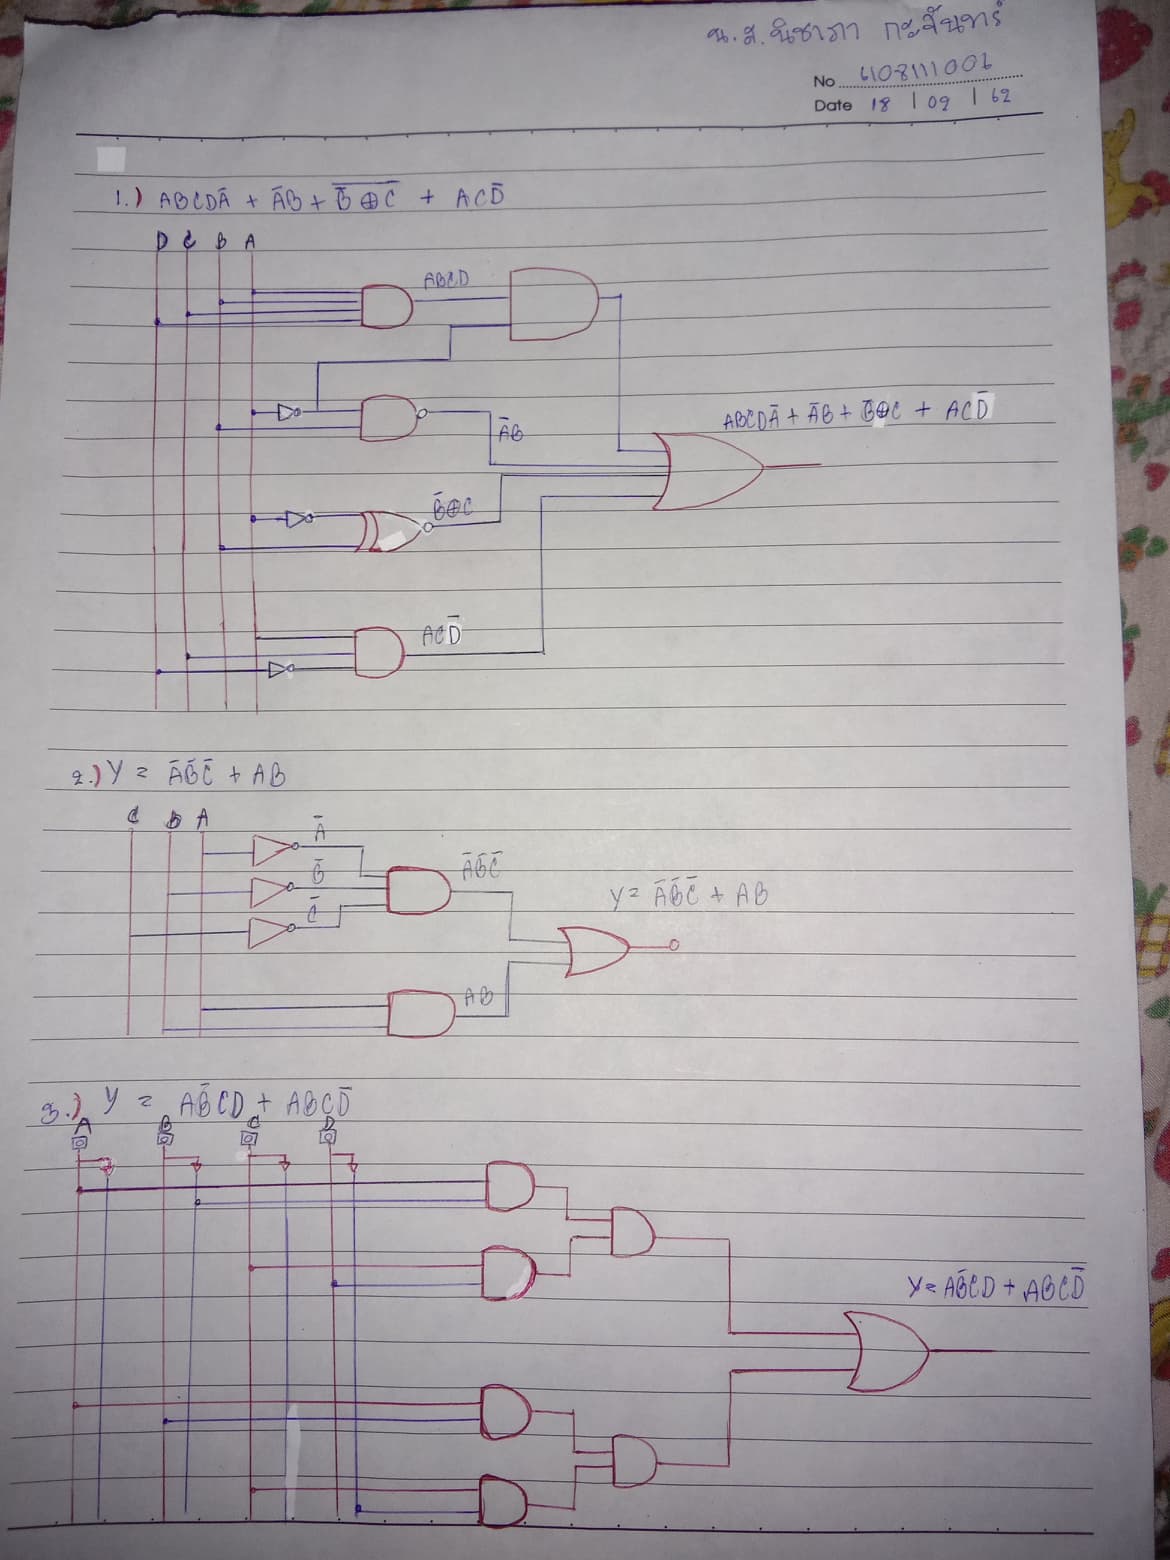 น.ส.นิชาภา กะจันทร์
No 6108111001
Date 18 / 09 / 62
1.) ABCDĀ + ĀB + \overline{B̄ ⊕ C̄} + ACD̄
D C B A
ABCD
ABCDĀ + ĀB + B̄⊕C + ACD̄
ĀB
B̄⊕C
ACD̄
2.) Y = ĀB̄C̄ + AB
C B A
Ā
B̄
C̄
ĀB̄C̄
Y = ĀB̄C̄ + AB
AB
3.) Y = AB̄CD + ABCD̄
A B C D
Y = AB̄CD + ABCD̄